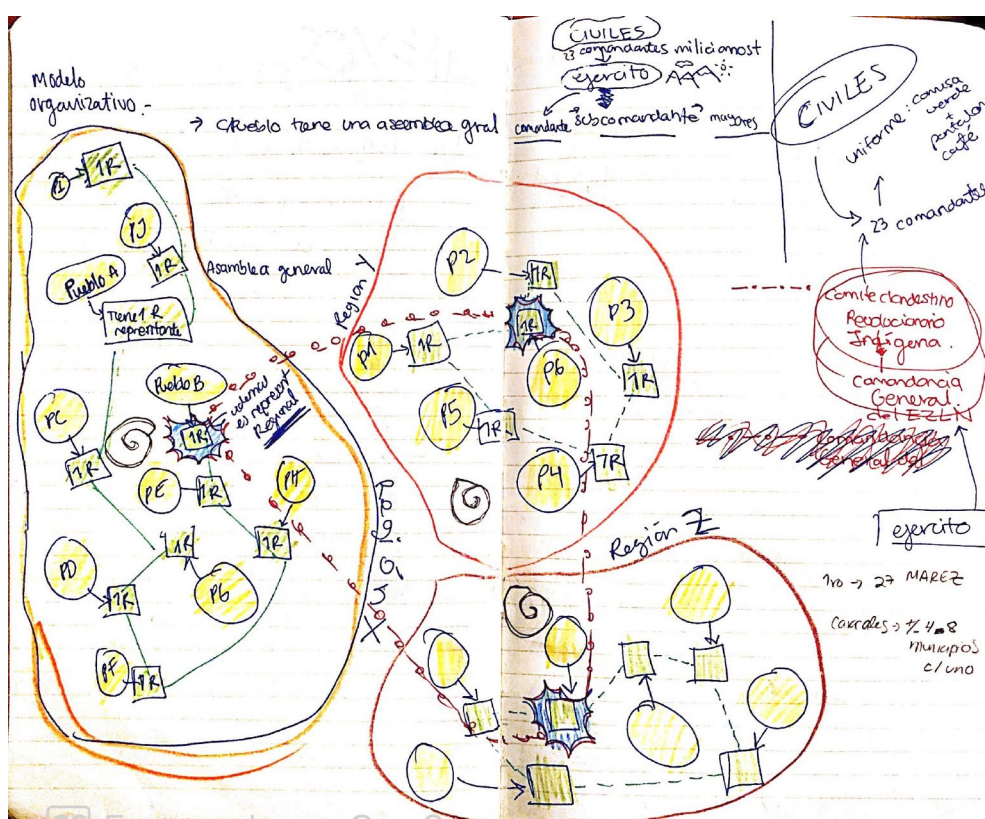 Modelo
organizativo -
→ c/Pueblo tiene una asemblea gral
CIVILES
23 comandantes milicianost
ejercito
comandante subcomandante mayores
CIVILES
uniforme: camisa
verde
+
pantalon
café
23 comandantes
Comite clandestino
Revolucionario
Indígena.
Comandancia
General
del EZLN
Comandancia
General del
ejercito
1ro → 27 MAREZ
caracoles → +/- 4-8
municipios
c/uno
Asamblea general
1R
PJ
1R
Pueblo A
Tiene 1 R
representante
Pueblo B
1R
es represent
Regional
PC
1R
PE
1R
PH
1R
1R
PG
PD
1R
PF
1R
Región X
Región Y
P2
1R
1R
P3
1R
P1
1R
P6
P5
1R
P4
1R
Región Z